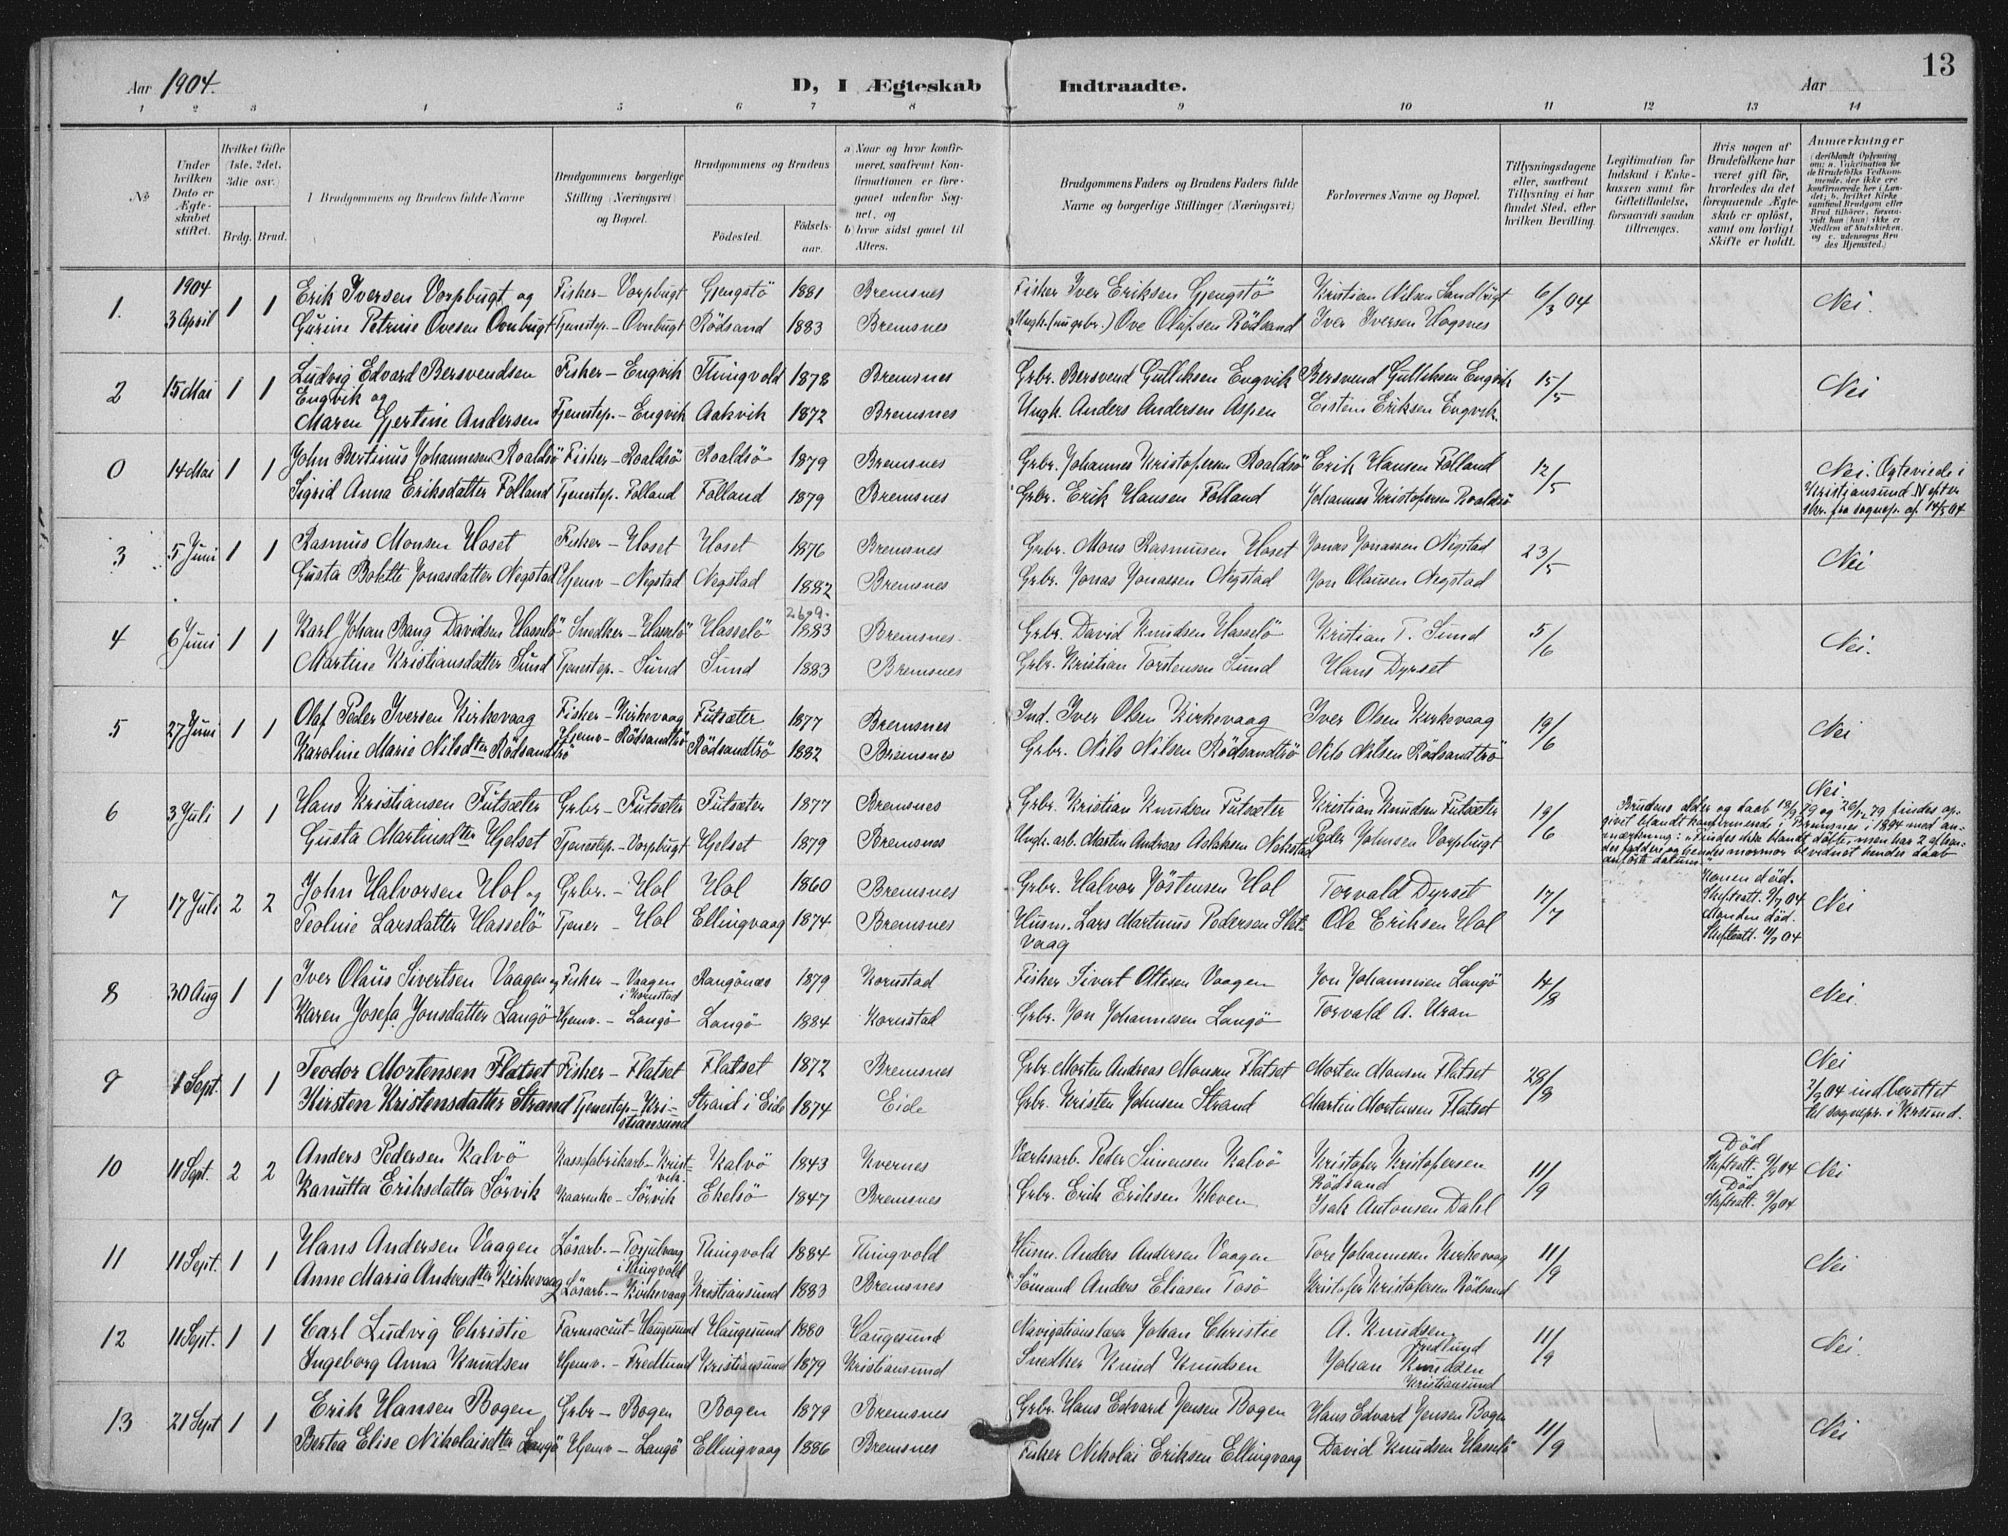 13
Aar 1904.
D, I Ægteskab Indtraadte.
Aar
1 2 3 4 5 6 7 8 9 10 11 12 13 14
No.
Under hvilken Dato er Ægteskabet stiftet.
Hvilket Gifte (1ste, 2det, 3die osv.)
Brdg. Brud.
Brudgommens og Brudens fulde Navne
Brudgommens borgerlige Stilling (Næringsvei) og Bopæl.
Brudgommens og Brudens
Fødested. Fødselsaar.
a) Naar og hvor konfirmeret, saafremt Konfirmationen er foregaaet udenfor Sognet, og
b) hvor sidst gaaet til Alters.
Brudgommens Faders og Brudens Faders fulde Navne og borgerlige Stillinger (Næringsvei)
Forlovernes Navne og Bopæl.
Tillysningsdagene eller, saafremt Tillysning ei har fundet Sted, efter hvilken Bevilling.
Legitimation for Indskud i Enkekassen samt for Giftetilladelse, forsaavidt saadan tiltrænges.
Hvis nogen af Brudefolkene har været gift før, hvorledes da det foregaaende Ægteskab er opløst, samt om lovligt Skifte er holdt.
Anmærkninger
1. 1904 3 April 1 1 Erik Iversen Vorpbugt og Fisker - Vorpbugt Gjengstö 1881 Bremsnes Fisker Iver Eriksen Gjengstö Kristian Nilsen Sandbugt 6/3 04 Nei.
Gurine Petrine Ovesen Ovnbugt Tjenestep. - Ovnbugt Rödsand 1883 Bremsnes Ungk. (nu grbr.) Ove Olufsen Rödsand Iver Iversen Hagsnes
2 15 Mai 1 1 Ludvig Edvard Bersvendsen Fisker - Engvik Thingvold 1878 Bremsnes Grbr. Bersvend Gulliksen Engvik Bersvend Gulliksen Engvik 15/5 Nei
Engvik og
Maren Gjertine Andersen Tjenestep. - Engvik Aakvik 1872 Bremsnes Ungk. Anders Andersen Aspen Eistein Eriksen Engvik.
0 14 Mai 1 1 John Bertinus Johannesen Roaldsö Fisker - Roaldsö Roaldsö 1879 Bremsnes Grbr. Johannes Kristofersen Roaldsö Erik Hansen Folland 12/5 Nei. Ægteviede i
Sigrid Anna Eriksdatter Folland Tjenestep. Folland Folland 1879 Bremsnes Grbr. Erik Hansen Folland Johannes Kristofersen Roaldsö Kristiansund N efter
skr. fra sognep. af 14/5 04
3 5 Juni 1 1 Rasmus Monsen Hoset Fisker - Hoset Hoset 1876 Bremsnes Grbr. Mons Rasmusen Hoset Jonas Jonassen Negstad 23/5 Nei
Gusta Bolette Jonasdatter Negstad Hjemv - Negstad Negstad 1882 Bremsnes Grbr. Jonas Jonassen Negstad Jon Olausen Negstad
4 6 Juni 1 1 Karl Johan Bang Davidsen Hasselö Snedker - Hasselö Hasselö 1883 Bremsnes. Grbr. David Knudsen Hasselö Kristian T. Sund 5/6 Nei.
Martine Kristiansdatter Sund Tjenestep. - Sund Sund 1883 Bremsnes Grbr. Kristian Torstensen Sund Hans Dyrset
5 27 Juni 1 1 Olaf Peder Iversen Kirkevaag Fisker - Kirkevaag Futsæter 1877 Bremsnes Ind. Iver Olsen Kirkevaag Iver Olsen Kirkevaag 19/6 Nei
Karoline Marie Nilsdter Rödsandtrö Hjemv - Rödsandtrö Rödsandtrö 1882 Bremsnes Grbr. Nils Nilsen Rödsandtrö Nils Nilsen Rödsandtrö
6 3 Juli 1 1 Hans Kristiansen Futsæter Grbr - Futsæter Futsæter 1877 Bremsnes Grbr. Kristian Knudsen Futsæter Kristian Knudsen Futsæter 19/6 Nei.
Gusta Martinsdtter Hjelset Tjenestep. - Vorpbugt Hjelset 1879 Bremsnes Ungk. arb. Martin Andreas Aslaksen Nekstad Peder Johnsen Vorpbugt
Brudens alder og daab 18/9 79 og 26/12 79 findes opgivet blandt konfirmerede i Bremsnes i 1894 med anmærkning: "Findes ikke blandt döbte, men har 2 af hendes faddere og hendes mormor bevidnet hendes daab anförte datums"
7 17 Juli 2 2 John Halvorsen Hol og Grbr. - Hol Hol 1860 Bremsnes Grbr. Halvor Jöstensen Hol Torvald Dyrset 17/7 Konen död. Skifteatt. 04 Nei
Teoline Larsdatter Hasselö Tjener - Hol Ellingvaag 1874 Bremsnes Husm. Lars Martinus Pedersen Slatvaag Ole Eriksen Hol Manden död. Skifteatt. 04
8 30 Aug 1 1 Iver Olaus Sivertsen Vaagen og Fisker - Vaagen i Kornstad Rangönæs 1879 Kornstad Fisker Sivert Ottesen Vaagen Jon Johannesen Langö 14/8 Nei.
Karen Josefa Jonsdatter Langö Hjemv. - Langö Langö 1884 Kornstad Grbr. Jon Johannesen Langö Torvald A. Uran
9 1 Sept. 1 1 Teodor Mortensen Flatset Fisker - Flatset Flatset 1872 Bremsnes Grbr Morten Andreas Monsen Flatset Morten Monsen Flatset 28/8 Nei
Kirsten Kristensdatter Strand Tjenestep - Kristiansund Strand i Eide 1874 Eide Grbr. Kristen Johnsen Strand Martin Mortensen Flatset 2/9 04 indberettet
til sognepr. i Krsund.
10 11 Sept. 2 2 Anders Pedersen Kalvö Kassefabrikarb - Kristvik. Kalvö 1843 Kvernes Verksarb. Peder Simensen Kalvö Kristofer Kristofersen Rödsand 11/9 Död Skifteatt. 04 Nei
Kanutta Eriksdatter Sörvik Kaarenke - Sörvik Ekelsö 1847 Bremsnes Grbr. Erik Eriksen Kleven Isak Antonsen Dahl Död Skifteatt. 04
11 11 Sept. 1 1 Hans Andersen Vaagen Lösarb. - Torjulvaag i Thingvold Thingvold 1884 Thingvold Husm. Anders Andersen Vaagen Tore Johannesen Kirkevaag 11/9 Nei
Anne Maria Andersdter Kirkevaag Lösarb. - Kirkevaag Kristiansund 1883 Bremsnes Sömand Anders Eliasen Tosö Kristofer Kristofersen Rödsand
12 11 Sept. 1 1 Carl Ludvig Christie Farmaceut - Haugesund Haugesund 1880 Haugesund Navigationslærer Johan Christie A. Knudsen Fredlund 11/9 Nei.
Ingeborg Anna Knudsen Hjemv. - Fredlund Kristiansund 1879 Kristiansund Snedker Knud Knudsen Johan Knudsen Kristiansund
13 21 Sept 1 1 Erik Hansen Bogen Grbr - Bogen Bogen 1879 Bremsnes Grbr. Hans Edvard Jensen Bogen Hans Edvard Jensen Bogen 11/9 Nei
Bertea Elise Nikolaisdter Langö Hjemv - Langö Ellingvaag 1886 Bremsnes Fisker Nikolai Eriksen Ellingvaag David Knudsen Hasselö